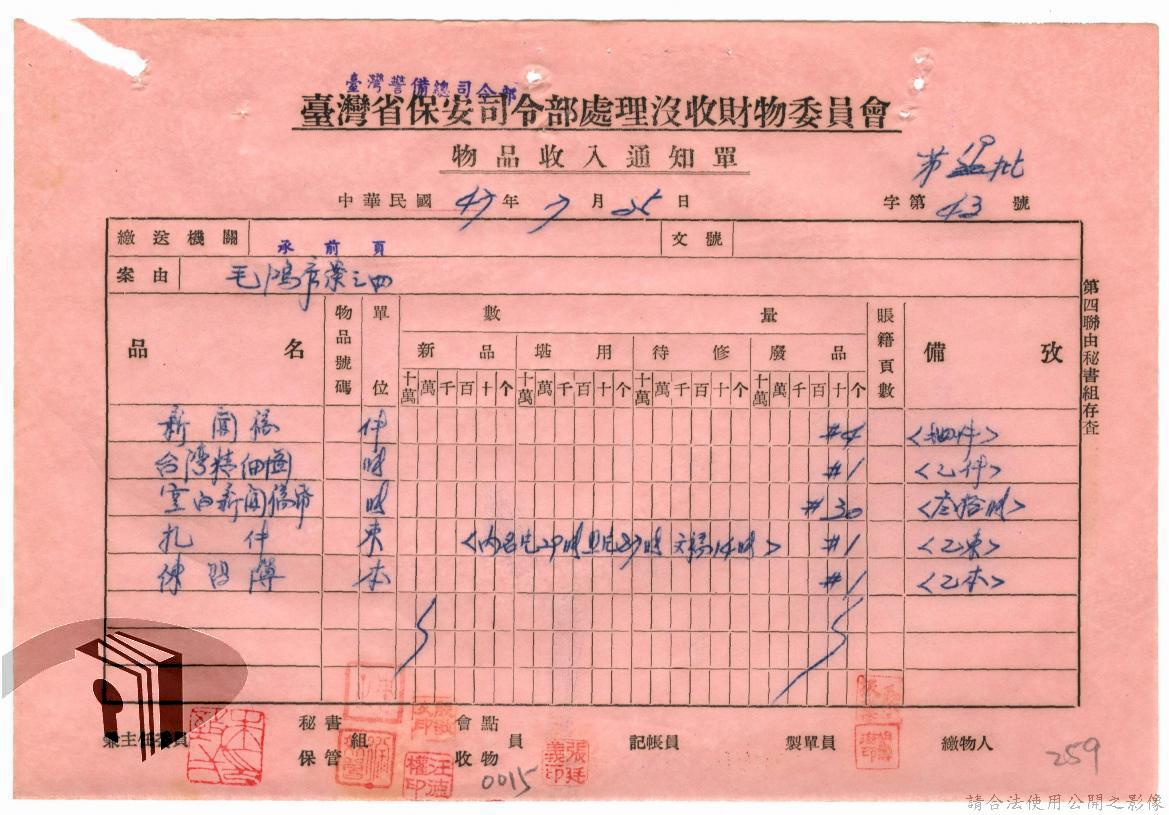 臺灣警備總司令部
臺灣省保安司令部處理沒收財物委員會
物品收入通知單
第 批
中華民國 47 年 7 月 25 日 字第 43 號
繳送機關 承前頁 文號
案由 毛鴻 案之四
品名 物品號碼 單位 數量 賬籍頁數 備攷
新品 堪用 待修 廢品
十萬 萬 千 百 十 个 十萬 萬 千 百 十 个 十萬 萬 千 百 十 个 十萬 萬 千 百 十 个
新聞稿 件 #4 <肆件>
台湾精細圖 #1 <乙件>
室内新聞稿 #30
札件 束 #1 <乙束>
練習簿 本 #1 <乙本>
第四聯由秘書組存查
兼主任委員 秘書組 保管 會點 收物 員 記帳員 製單員 繳物人
張廷義印
0015
259
請合法使用公開之影像